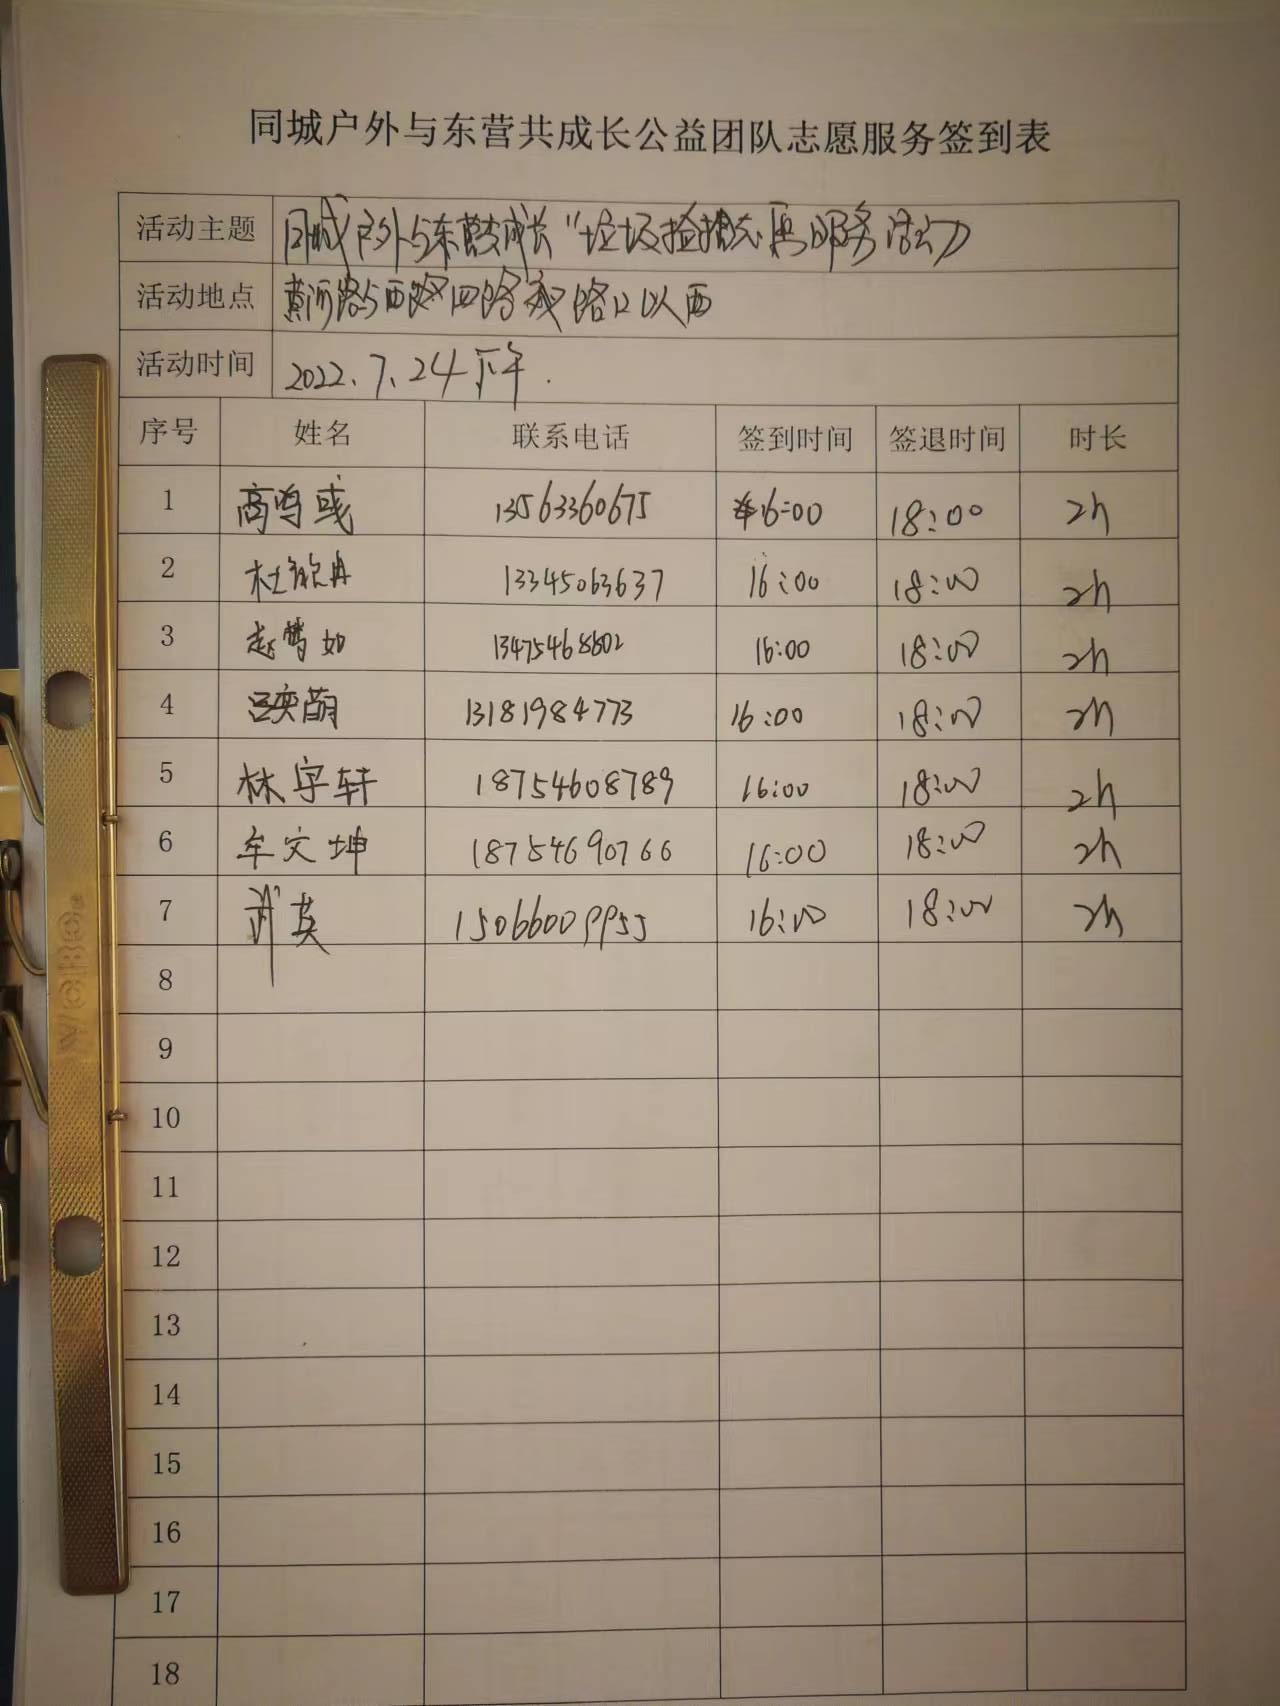 同城户外与东营共成长公益团队志愿服务签到表
活动主题 同城户外与东营共成长"垃圾捡拾志愿服务活动
活动地点 黄河路与西四路路口以西
活动时间 2022.7.24下午.
序号 姓名 联系电话 签到时间 签退时间 时长
1 高鸣彧 13563360675 16:00 18:00 2h
2 杜 13345063637 16:00 18:00 2h
3 赵梦如 13475468602 16:00 18:00 2h
4 吕奕萌 13181984773 16:00 18:00 2h
5 林宇轩 18754608789 16:00 18:00 2h
6 牟文坤 18754690766 16:00 18:00 2h
7 英 15066009955 16:00 18:00 2h
8
9
10
11
12
13
14
15
16
17
18